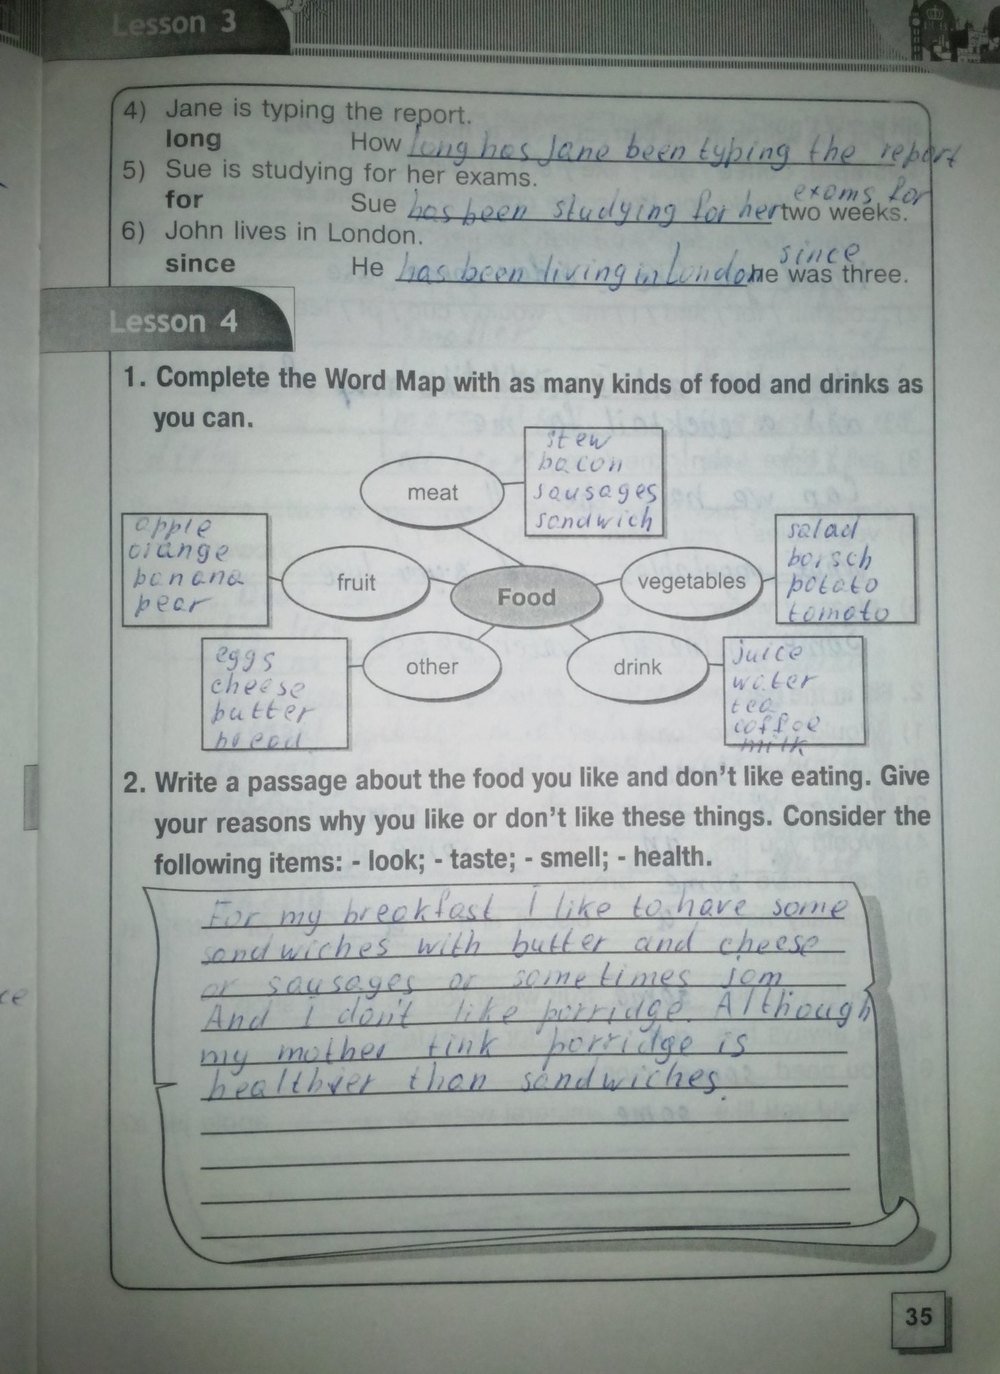 Lesson 3
4) Jane is typing the report.
long How long has Jane been typing the report
5) Sue is studying for her exams.
for Sue has been studying for her exams for two weeks.
6) John lives in London.
since He has been living in London since he was three.
Lesson 4
1. Complete the Word Map with as many kinds of food and drinks as
you can.
meat
stew
bacon
sausages
sandwich
apple
orange
banana
pear
fruit
Food
vegetables
salad
borsch
potato
tomato
eggs
cheese
butter
bread
other
drink
juice
water
tea
coffee
milk
2. Write a passage about the food you like and don't like eating. Give
your reasons why you like or don't like these things. Consider the
following items: - look; - taste; - smell; - health.
For my breakfast I like to have some
sandwiches with butter and cheese
or sausages or sometimes jom
And I don't like porridge. Although
my mother tink porridge is
healthier than sandwiches.
35